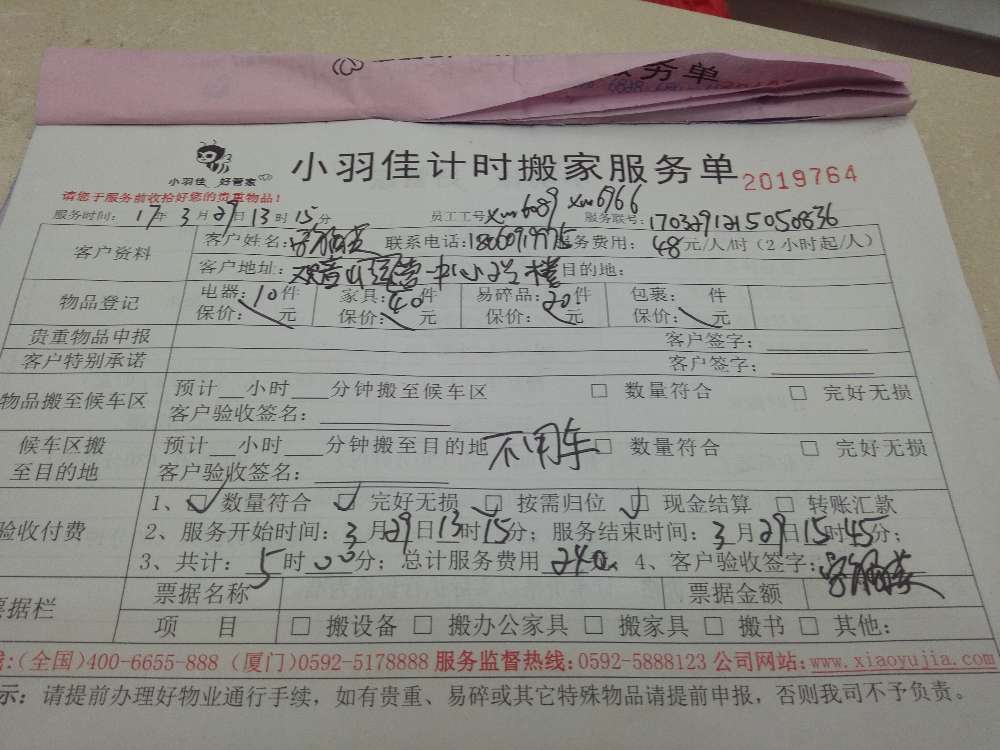 务单
小羽佳 好管家
小羽佳计时搬家服务单 2019764
请您于服务前收拾好您的贵重物品!
服务时间: 17年3月29日13时15分 员工工号 xm6089 xm6966 服务联号: 
客户资料 客户姓名: 联系电话: 服务费用: 48元/人/时(2小时起/人)
客户地址: 目的地:
物品登记 电器:10件 家具:40件 易碎品:20件 包裹: 件
保价: 元 保价: 元 保价: 元 保价: 元
贵重物品申报 客户签字:
客户特别承诺 客户签字:
物品搬至候车区 预计__小时___分钟搬至候车区 □ 数量符合 □ 完好无损
客户验收签名:
候车区搬至目的地 预计__小时___分钟搬至目的地 不用车 □ 数量符合 □ 完好无损
客户验收签名:
验收付费 1、☑数量符合 ☑完好无损 ☑按需归位 ☑现金结算 □ 转账汇款
2、服务开始时间:3月29日13时15分; 服务结束时间:3月29日15时45分;
3、共计:5时00分; 总计服务费用240元 4、客户验收签字:
票据栏 票据名称 票据金额
项 目 □ 搬设备 □ 搬办公家具 □ 搬家具 □ 搬书 □ 其他:
:(全国)400-6655-888 (厦门)0592-5178888 服务监督热线:0592-5888123 公司网站:www.xiaoyujia.com
示: 请提前办理好物业通行手续,如有贵重、易碎或其它特殊物品请提前申报,否则我司不予负责。